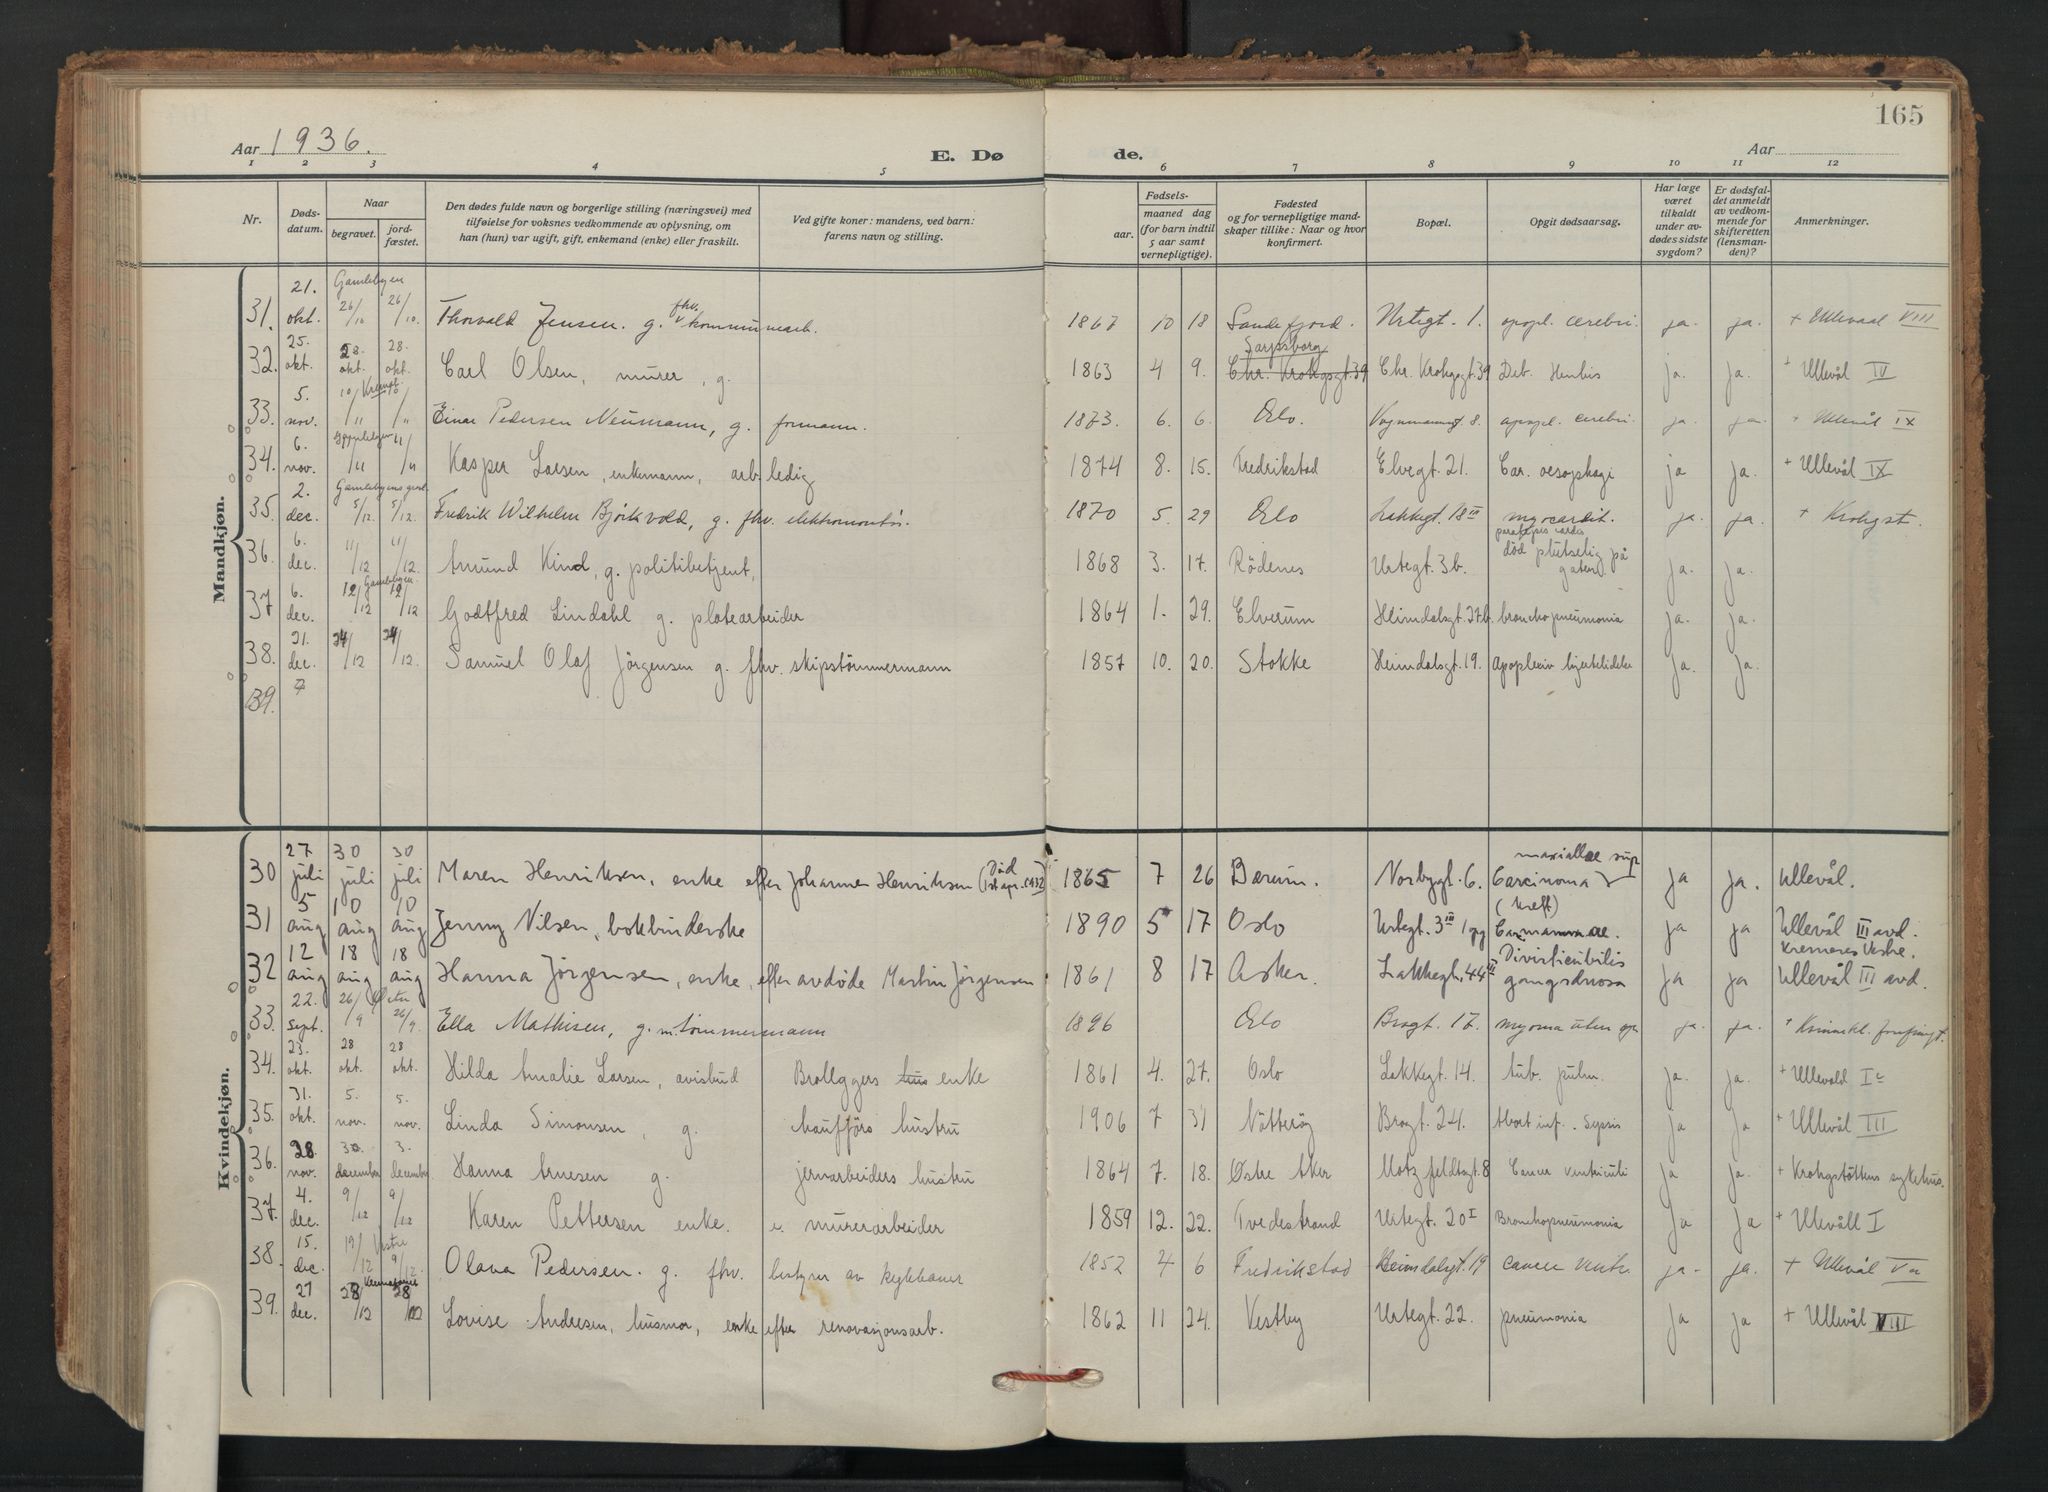 165
Aar 1936.
E. Dø
de.
Aar
1 2 3 4 5 6 7 8 9 10 11 12
Nr.
Døds-
datum.
Naar
begravet.
jord-
fæstet.
Den dødes fulde navn og borgerlige stilling (næringsvei) med
tilføielse for voksnes vedkommende av oplysning, om
han (hun) var ugift, gift, enkemand (enke) eller fraskilt.
Ved gifte koner: mandens, ved barn:
farens navn og stilling.
Fødsels-
aar.
maaned dag
(for barn indtil
5 aar samt
vernepligtige).
Fødested
og for vernepligtige mand-
skaper tillike: Naar og hvor
konfirmert.
Bopæl.
Opgit dødsaarsag.
Har læge
været
tilkaldt
under av-
dødes sidste
sygdom?
Er dødsfal-
det anmeldt
av vedkom-
mende for
skifteretten
(lensman-
den)?
Anmerkninger.
Mandkjøn.
31. 21. okt. Gamlebyen 26/10 26/10. Thorvald Jensen. g. fhv. kommunearb. 1867 10 18 Sandefjord. Urtegt. 1. apopl. cerebri. ja. ja. + Ullevaal VIII
32. 25. okt. 28. okt. 28. okt. Carl Olsen, murer, g. 1863 4 9. Sarpsborg Chr. Krohgsgt. 39 Chr. Krohgsgt. 39 Deb. ja. ja. + Ullevål IV
33. 5. nov. 10/11 10/11 Einar Pedersen Neumann, g. formann. 1873. 6. 6. Oslo. Vognmannsgt. 8. apopl. cerebri. ja ja + Ullevål IX
34. 6. nov. Gamlebyen 11/11 11/11 Kasper Larsen, enkemann, arb.ledig 1874 8. 15. Fredrikstad Elvegt. 21. Car. oesophagi ja ja. + Ullevål IX
35. 2. dec. Gamlebyens 5/12 5/12. Fredrik Wilhelm Björkvold, g. fhv. elektromontör. 1870 5. 29 Oslo Lakkegt. 18 III myocardit. ja. ja. + Krohgst.
36. 6. dec. 11/12 11/12. Amund Kind, g. politibetjent, 1868 3. 17. Rödenes Urtegt. 3b. död plutselig på gaten. ja. ja.
37 6. dec. Gamlebyen 12/12 12/12 Godtfred Lindahl g. platearbeider 1864 1. 29. Elverum Heimdalsgt. 27b. bronchopneumonia ja. ja.
38. 21. dec. 24/12 24/12. Samuel Olaf Jörgensen g. fhv. skipstömmermann 1857 10. 20. Stokke Heimdalsgt. 19. hjertelidelse Ja. Ja.
39.
Kvindekjøn.
30 27 juli 30 juli 30 juli Maren Henriksen, enke efter Johannes Henriksen (Död 1st apr. 1932) 1865 7 26 Bærum. Norbygt. 6. Carcinoma maxillae sup (kreft) ja ja. Ullevål.
31 5 aug 10 aug 10 aug Jenny Nilsen, bokbinderske 1890 5 17 Oslo Urtegt. 3 III Ca. mammae. ja ja Ullevål III avd.
32 12 aug 18 aug 18 aug Hanna Jörgensen, enke, efter avdöde Martin Jörgensen 1861 8 17 Asker. Lakkegt. 44 III ja ja Ullevål III avd.
33. 22. Sept. 26/9 26/9. Ella Mathisen, g. m. tömmermann 1896 Oslo Brogt. 17. myoma uteri ja. ja. +
34. 23. okt. 28 okt. 28 okt. Hilda Amalie Larsen, avisbud Broleggers enke 1861 4. 27. Oslo Lakkegt. 14. tub. pulm. ja. ja. + Ullevål I
35. 31. okt. 5. nov. 5. nov. Linda Simonsen, g. chaufförs hustru 1906 7 31 Nötteröy Brogt. 24. Abort inf. Sepsis ja ja + Ullevål III
36. 28. nov. 3. december 3. december Hanna Arnesen g. jernarbeiders hustru 1864 7. 18. Østre Aker Motzfeldtsgt. 8 Cancer ventriculi ja ja. + Krohgstöttens sykehus.
37. 4. dec. 9/12 9/12 Karen Pettersen enke. e. murerarbeider 1859 12. 22. Tvedestrand Urtegt. 20 I Bronchopneumonia Ja ja + Ullevåll I
38. 15. dec. 19/12 Vestre 9/12. Olava Pedersen. g. fhv. bestyrer av 1852 4 6 Fredrikstad Heimdalsgt. 19 cancer ventr. ja ja. + Ullevål V
39. 27 dec. 28/12 28/12 Lovise Andresen, husmor, enke efter renovasjonsarb. 1862 11 24. Vestby Urtegt. 22. pneumonia Ja ja + Ullevål VIII